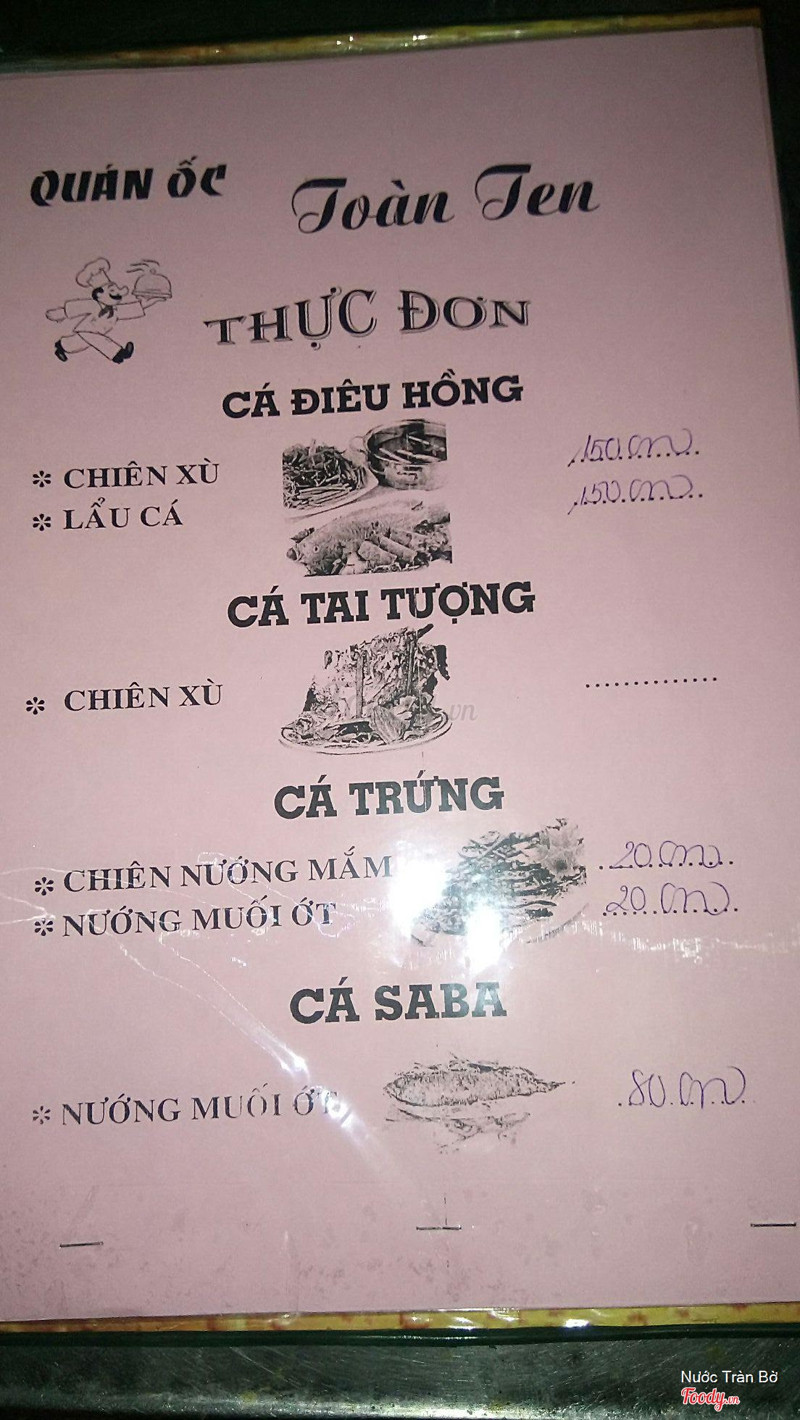 QUÁN ỐC Toàn Ten
THỰC ĐƠN
CÁ ĐIÊU HỒNG
* CHIÊN XÙ 150.000
* LẨU CÁ 150.000
CÁ TAI TƯỢNG
* CHIÊN XÙ ..............
CÁ TRỨNG
* CHIÊN NƯỚNG MẮM 20.000
* NƯỚNG MUỐI ỚT 20.000
CÁ SABA
* NƯỚNG MUỐI ỚT 80.000
Nước Tràn Bờ
Foody.vn